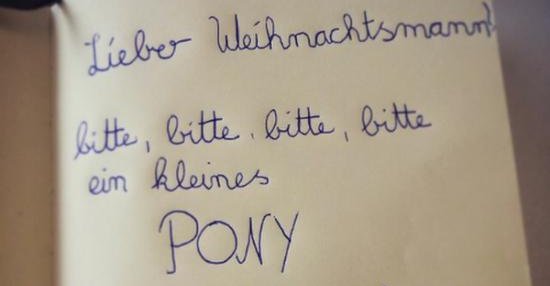 Lieber Weihnachtsmann!
bitte, bitte, bitte, bitte
ein kleines
PONY